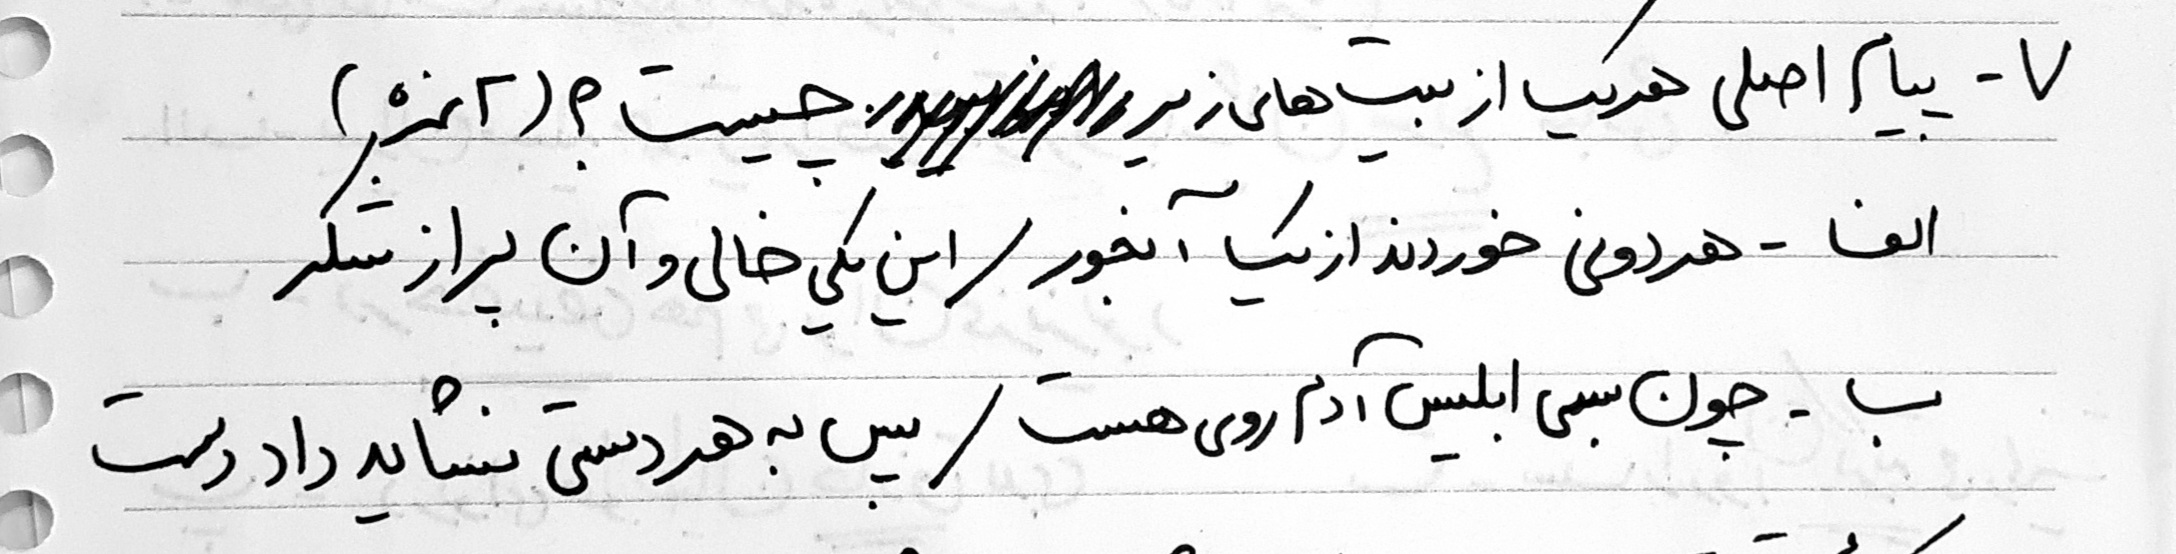 ۷- پیام اصلی هر یک از بیت های زیر چیست؟ (۲ نمره)
الف - هر دو نی خوردند از یک آبخور / این یکی خالی و آن پر از شکر
ب - چون بسی ابلیس آدم روی هست / پس به هر دستی نشاید داد دست